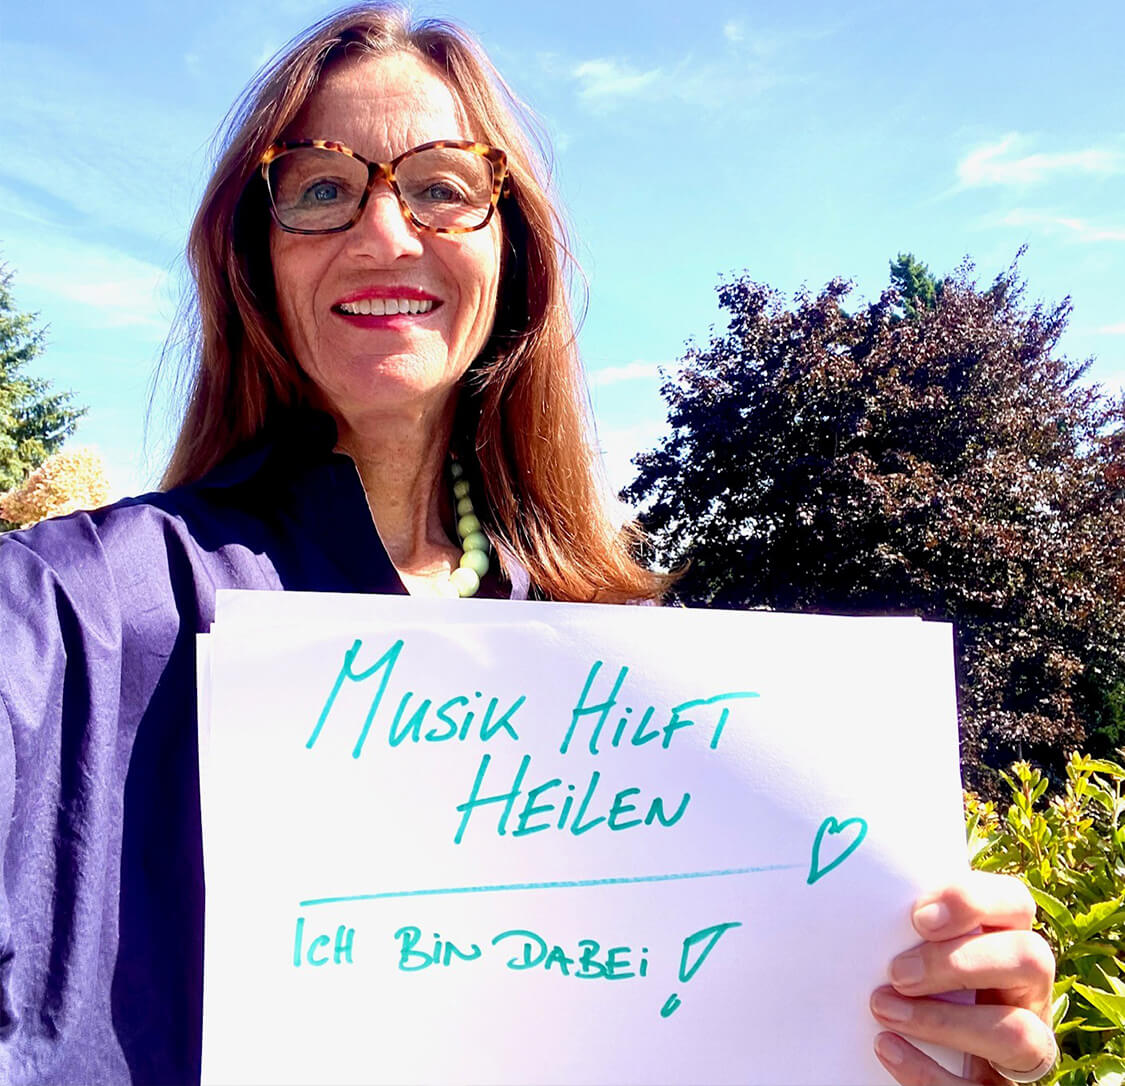 Musik Hilft
Heilen
Ich bin dabei!